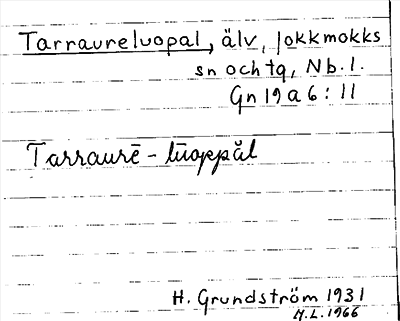 Tarraureluopal, älv, Jokkmokks
sn och tg, Nb. l.
Gn 19 a 6 : 11
Tarraurē - lūoppăl
H. Grundström 1931
M.L. 1966